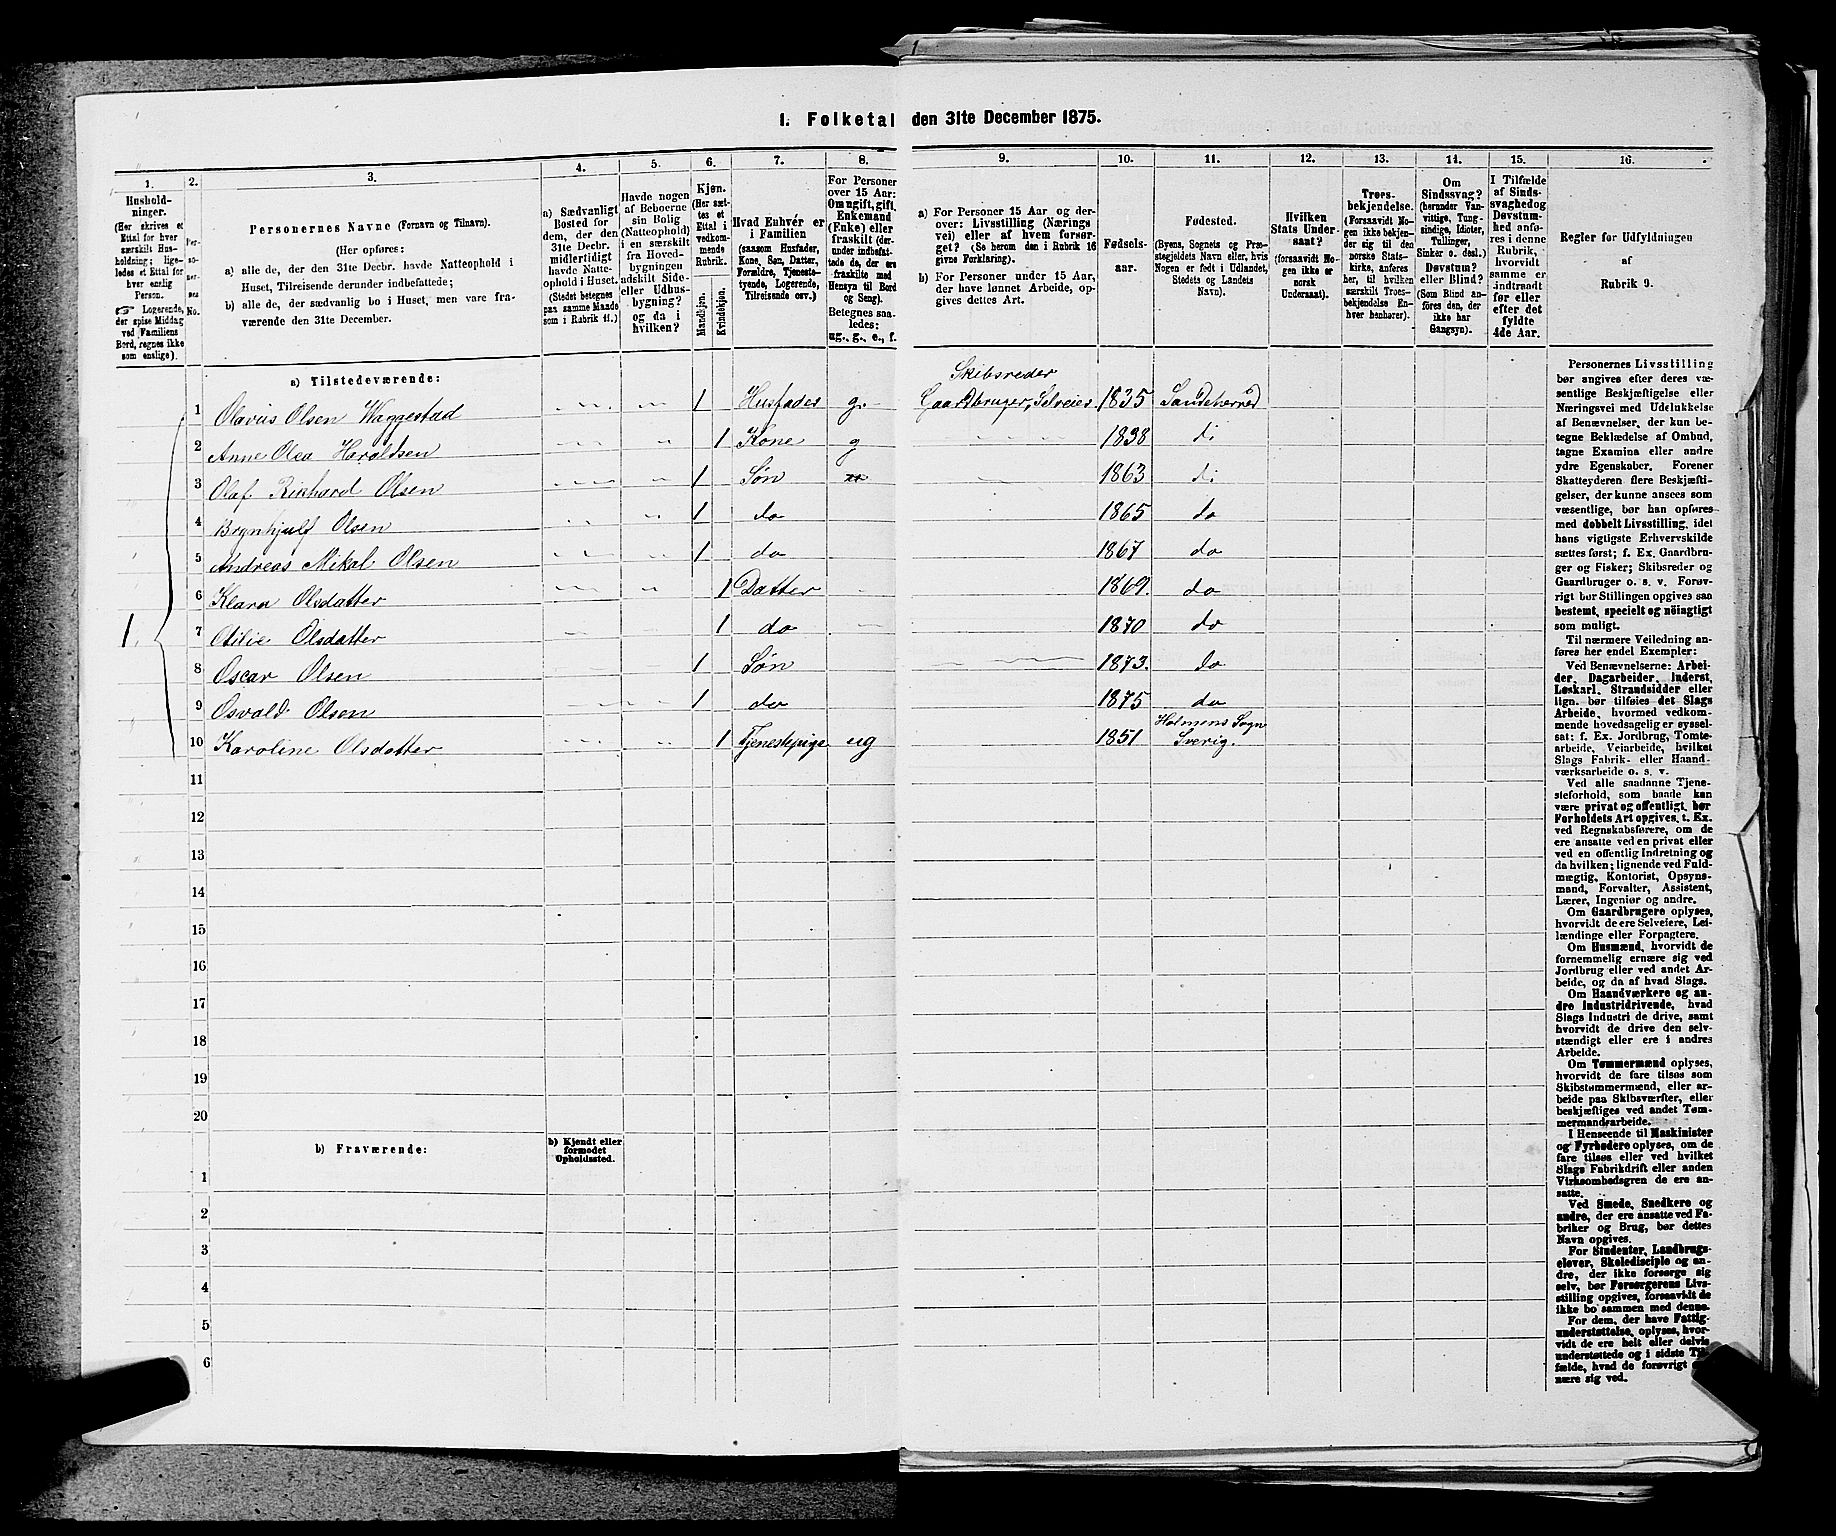 1. Folketal den 31te December 1875.
1. 2. 3. 4. 5. 6. 7. 8. 9. 10. 11. 12. 13. 14. 15. 16.
Hushold-
ninger.
(Her skrives et
Ettal for hver
særskilt Hus-
holdning; lige-
ledes et Ettal for
hver enslig
Person.
☞ Logerende,
der spise Middag
ved Familiens
Bord, regnes ikke
som enslige).
Per-
so-
ner-
nes
No.
Personernes Navne (Fornavn og Tilnavn).
(Her opføres:
a) alle de, der den 31te Decbr. havde Natteophold i
Huset, Tilreisende derunder indbefattede;
b) alle de, der sædvanlig bo i Huset, men vare fra-
værende den 31te December.
a) Sædvanligt
Bosted for
dem, der den
31te Decbr.
midlertidigt
havde Natte-
ophold i Huset.
(Stedet betegnes
paa samme Maade
som i Rubrik 11.)
Havde nogen
af Beboerne
sin Bolig
(Natteophold)
i en særskilt
fra Hoved-
bygningen
adskilt Side-
eller Udhus-
bygning?
og da i
hvilken?
Kjøn.
(Her sæt-
tes et
Ettal i
vedkom-
mende
Rubrik.
Mandkjøn.
Kvindekjøn.
Hvad Enhver er
i Familien
(saasom Husfader,
Kone, Søn, Datter,
Forældre, Tjeneste-
tyende, Logerende,
Tilreisende osv.)
For Personer
over 15 Aar:
Om ugift, gift,
Enkemand
(Enke) eller
fraskilt (der-
under indbefat-
tede de, der ere
fraskilte med
Hensyn til Bord
og Seng).
Betegnes saa-
ledes:
ug., g., e., f.
a) For Personer 15 Aar og der-
over: Livsstilling (Nærings
vei) eller af hvem forsør-
get? (Se herom den i Rubrik 16
givne Forklaring).
b) For Personer under 15 Aar,
der have lønnet Arbeide, op-
gives dettes Art.
Fødsels-
aar.
Fødested.
(Byens, Sognets og Præ-
stegjeldets Navn eller, hvis
Nogen er født i Udlandet,
Stedets og Landets
Navn).
Hvilken
Stats Under-
saat?
(forsaavidt No-
gen ikke er
norsk
Undersaat).
Troes-
bekjendelse.
(Forsaavidt No-
gen ikke bekjen-
der sig til den
norske Stats-
kirke, anføres
her, til hvilken
særskilt Troes-
bekjendelse En-
hver henhører).
Om
Sindssvag?
(herunder Van-
vittige, Tung-
sindige, Idioter,
Tullinger,
Sinker o. desl.)
Døvstum?
eller Blind?
(Som Blind an-
føres den, der
ikke har
Gangsyn).
I Tilfælde
af Sinds-
svaghed og
Døvstum-
hed anfø-
res i denne
Rubrik,
hvorvidt
samme er
indtraadt
før eller
efter det
fyldte
4de Aar.
Regler for Udfyldningen
af
Rubrik 9.
a) Tilstedeværende:
Skibsreder
1 Olavus Olsen Waggestad 1 Husfader g. Gaardbruger, Selveier 1835 Sandeherred
2 Anne Olea Haroldsen 1 Kone g 1838 di
3 Olaf Rikhard Olsen 1 Søn 1863 di
4 Brynhjulf Olsen 1 do 1865 do
5 Andreas Mikal Olsen 1 do 1867 do
6 Klara Olsdatter 1 Datter 1869. do
1. 7 Otilie Olsdatter 1 do 1870 do
8 Oscar Olsen 1 Søn 1873. do
9 Osvald Olsen 1 do 1875 do
Holmens Sogn
10 Karoline Olsdatter 1 Tjenestepige ug 1851 Sverig.
11
12
13
14
15
16
17
18
19
20
b) Fraværende:
b) Kjendt eller
formodet
Opholdssted.
1
2
3
4
5
6
Personernes Livsstilling
bør angives efter deres væ-
sentlige Beskjæftigelse eller
Næringsvei med Udelukkelse
af Benævnelser, der kun be-
tegne Beklædelse af Ombud,
tagne Examina eller andre
ydre Egenskaber. Forener
Skatteyderen flere Beskjæfti-
gelser, der kunne ansees som
væsentlige, bør han opføres
med dobbelt Livsstilling, idet
hans vigtigste Erhvervskilde
sættes først; f. Ex. Gaardbru-
ger og Fisker; Skibsreder og
Gaardbruger o. s. v. Forøv-
rigt bør Stillingen opgives saa
bestemt, specielt og nöiagtigt
som muligt.
Til nærmere Veiledning an-
føres her endel Exempler:
Ved Benævnelserne: Arbei-
der, Dagarbeider, Inderst,
Løskarl, Strandsidder eller
lign. bør tilføies det Slags
Arbeide, hvormed vedkom-
mende hovedsagelig er syssel-
sat; f. Ex. Jordbrug, Tomte-
arbeide, Veiarbeide, hvilket
Slags Fabrik- eller Haand-
værksarbeide o. s. v.
Ved alle saadanne Tjene-
steforhold, som baade kan
være privat og offentligt, bør
Forholdets Art opgives, t. Ex.
ved Regnskabsførere, om de
ere ansatte ved en privat eller
ved en offentlig Indretning og
da hvilken; lignende ved Fuld-
mægtig, Kontorist, Opsyns-
mand, Forvalter, Assistent,
Lærer, Ingeniør og andre.
Om Gaardbrugere oplyses,
hvorvidt de ere Selveiere, Lei-
lændinge eller Forpagtere.
Om Husmænd, hvorvidt de
fornemmelig ernære sig ved
Jordbrug eller ved andet Ar-
beide, og da af hvad Slags.
Om Haandværkere og an-
dre Industridrivende, hvad
Slags Industri de drive, samt
hvorvidt de drive den selv-
stændigt eller ere i andres
Arbeide.
Om Tømmermænd oplyses,
hvorvidt de fare tilsøs som
Skibstømmermænd, eller ar-
beide paa Skibsværfter, eller
beskjæftiges ved andet Tøm-
mermandsarbeide.
I Henseende til Maskinister
og Fyrbødere oplyses, om de
fare tilsøs eller ved hvilket
Slags Fabrikdrift eller anden
Virksomhedsgren de ere an-
satte.
Ved Smede, Snedkere og
andre, der ere ansatte ved Fa-
briker og Brug, bør dettes
Navn opgives.
For Studenter, Landbrugs-
elever, Skoledisciple og an-
dre, der ikke forsørge sig
selv, bør Forsørgerens Livs-
stilling opgives, forsaavidt de
ikke bo sammen med denne.
For dem, der have Fattig-
understøttelse, oplyses, hvor-
vidt de ere helt eller delvis
understøttede og i sidste Til-
fælde, hvad de forøvrigt
nære sig ved.